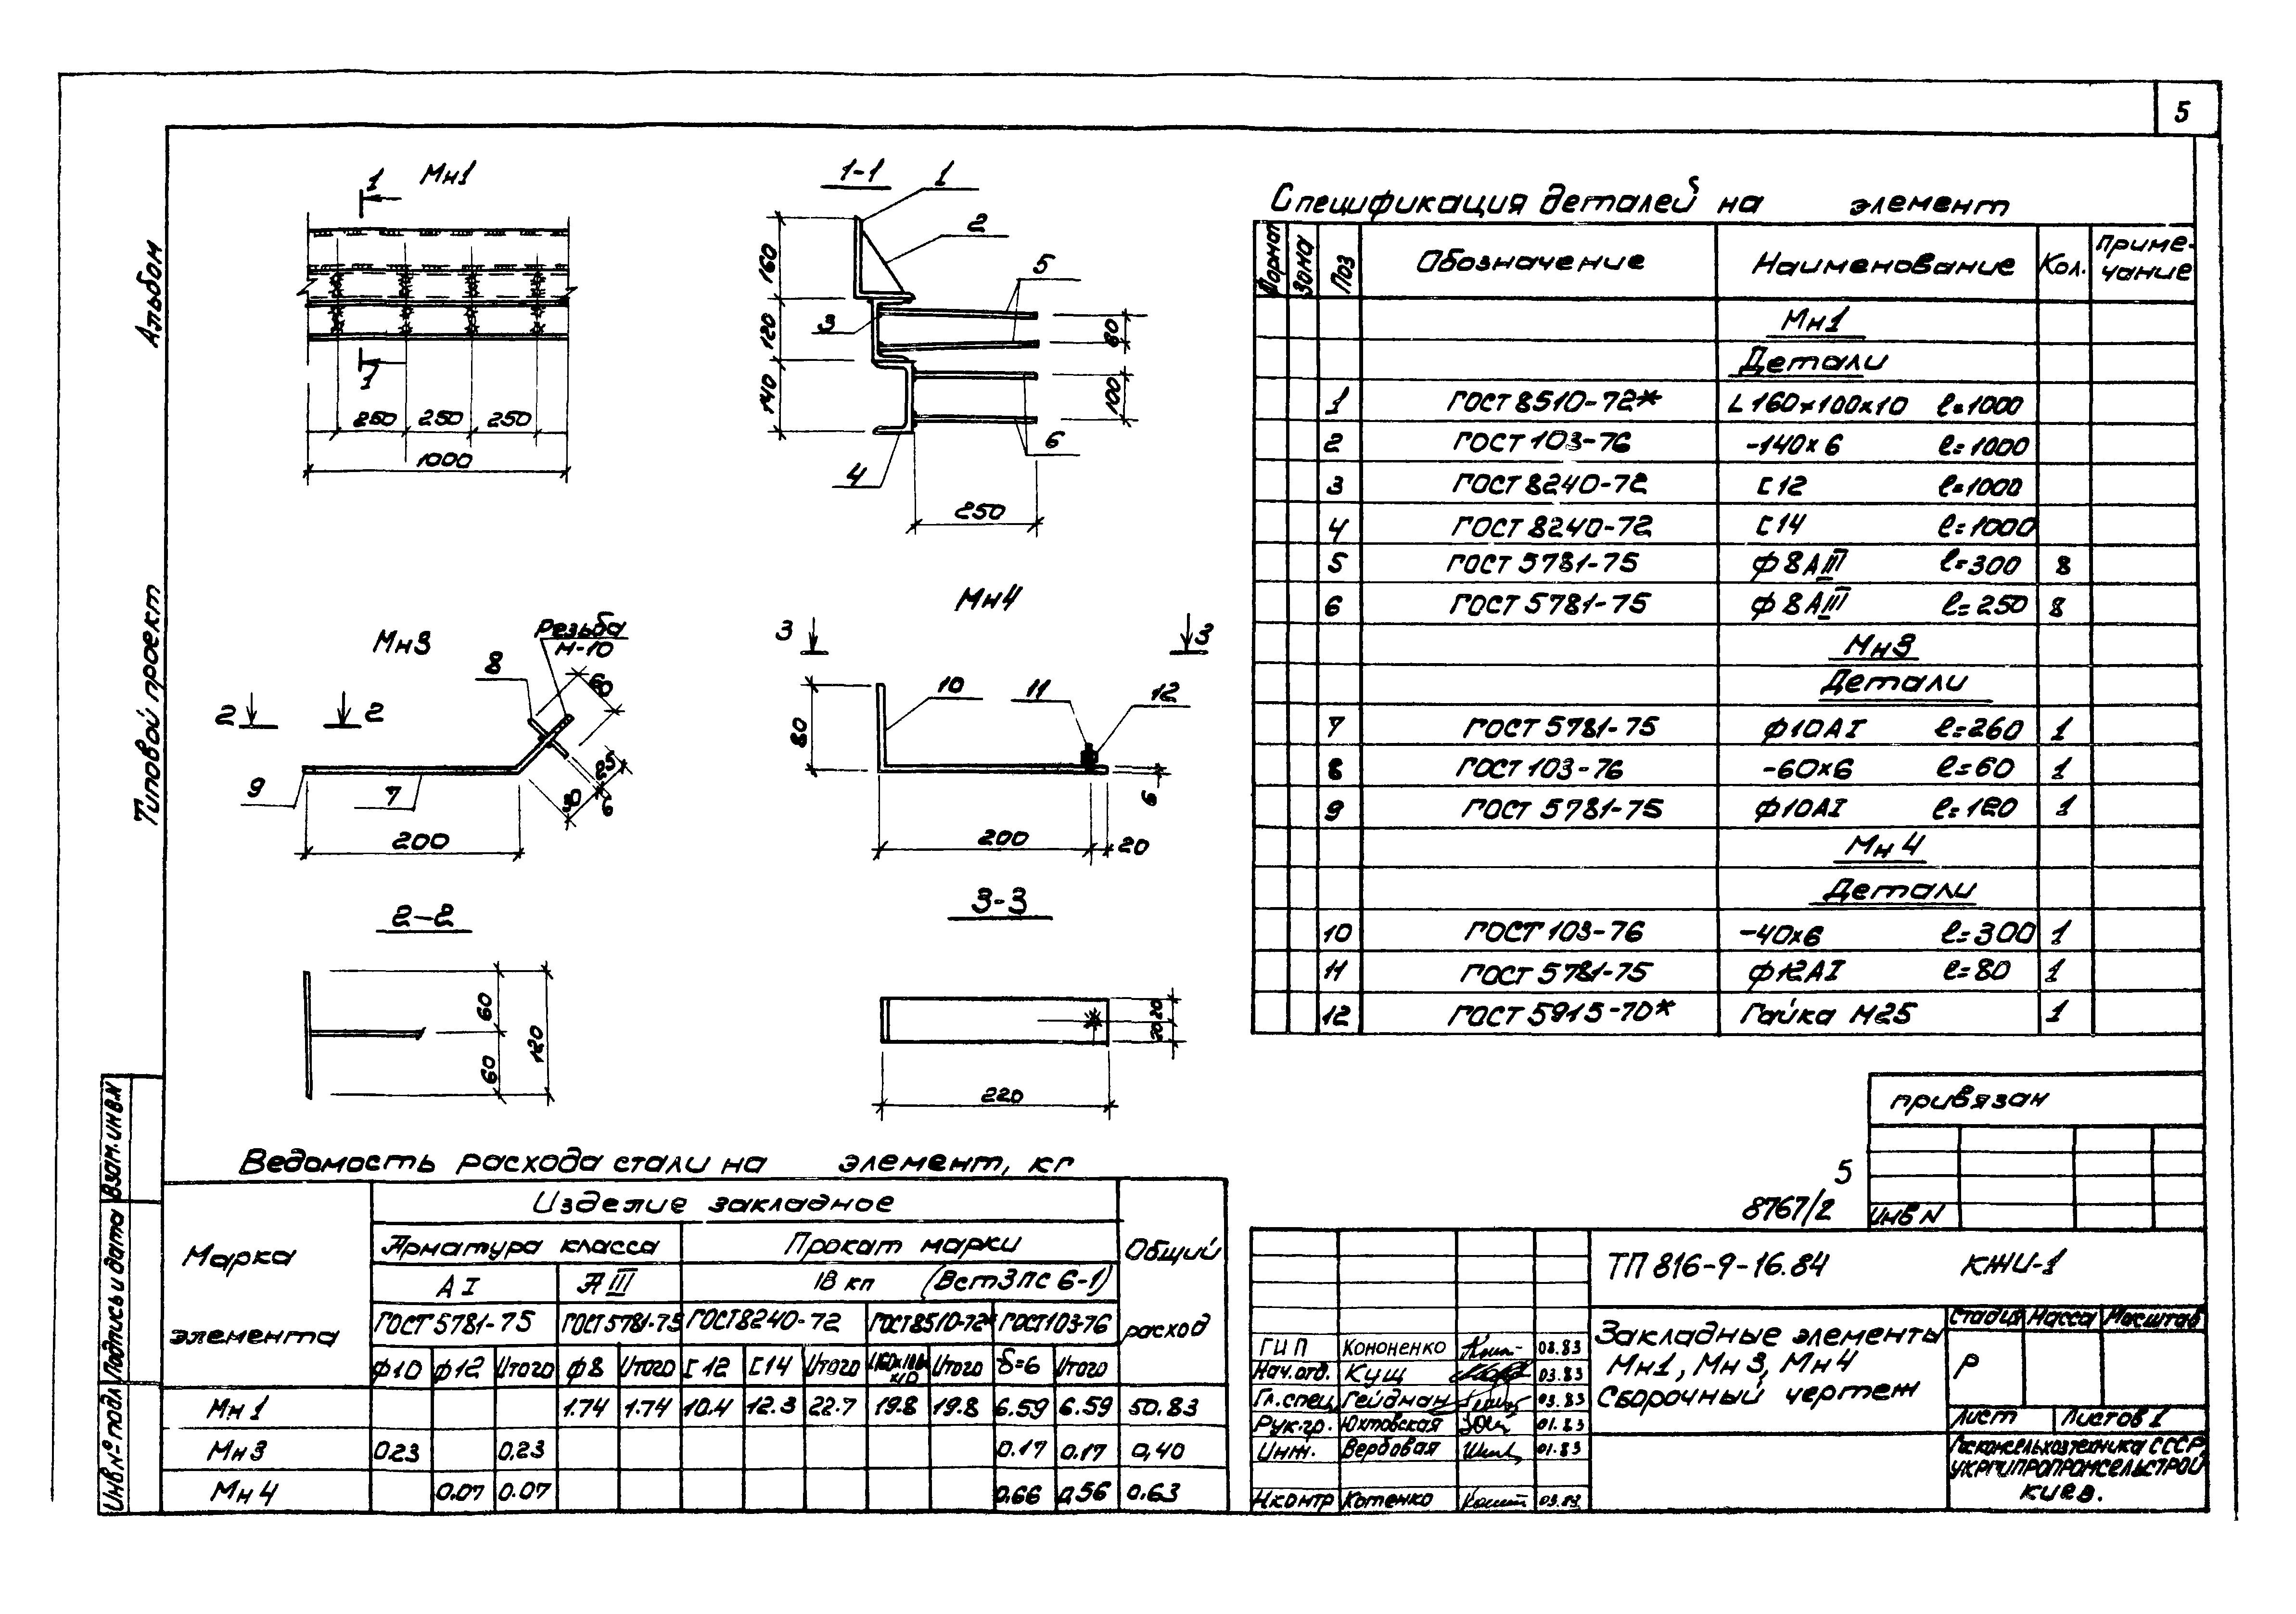 5
Альбом
Типовой проект
Взам. инв. N
Подпись и дата
Инв № подл
Мн1
1
1
250
250
250
1000
1-1
1
2
3
4
5
6
160
120
140
80
100
250
Мн3
Резьба
М-10
2
2
7
8
9
60
25
30
6
200
Мн4
3
3
10
11
12
80
6
200
20
2-2
60
60
120
3-3
20
20
220
Спецификация деталей на элемент
Формат Зона Поз Обозначение Наименование Кол. Приме-
чание
Мн1
Детали
1 ГОСТ 8510-72* L 160×100×10 ℓ=1000
2 ГОСТ 103-76 -140×6 ℓ=1000
3 ГОСТ 8240-72 С 12 ℓ=1000
4 ГОСТ 8240-72 С 14 ℓ=1000
5 ГОСТ 5781-75 Ф 8 АIII ℓ=300 8
6 ГОСТ 5781-75 Ф 8 АIII ℓ=250 8
Мн3
Детали
7 ГОСТ 5781-75 Ф10АI ℓ=260 1
8 ГОСТ 103-76 -60×6 ℓ=60 1
9 ГОСТ 5781-75 Ф10АI ℓ=120 1
Мн4
Детали
10 ГОСТ 103-76 -40×6 ℓ=300 1
11 ГОСТ 5781-75 Ф12АI ℓ=80 1
12 ГОСТ 5915-70* Гайка М25 1
Ведомость расхода стали на элемент, кг
Марка
элемента
Изделие закладное
Общий
расход
Арматура класса Прокат марки
А I А III 18 кп (Вст3пс 6-1)
ГОСТ 5781-75 ГОСТ 5781-75 ГОСТ 8240-72 ГОСТ 8510-72* ГОСТ 103-76
Ф10 Ф12 Итого Ф8 Итого С 12 С 14 Итого L160×100×10 Итого δ=6 Итого
Мн1 1.74 1.74 10.4 12.3 22.7 19.8 19.8 6.59 6.59 50.83
Мн3 0.23 0.23 0.17 0.17 0,40
Мн4 0.07 0.07 0.66 0,56 0.63
привязан
Инв N
5
8767/2
ТП 816-9-16.84 КЖИ-1
Закладные элементы
Мн1, Мн3, Мн4
Сборочный чертеж
Стадия Масса Масштаб
Р
Лист Листов 1
Госкомсельхозтехника СССР
УКРГИПРОПРОМСЕЛЬСТРОЙ
Киев.
ГИП Кононенко 03.83
Нач. отд. Кущ 03.83
Гл. спец. Гейдман 03.83
Рук. гр. Юхтовская 01.83
Инж. Вербовая 01.83
Н.контр Котенко 03.83